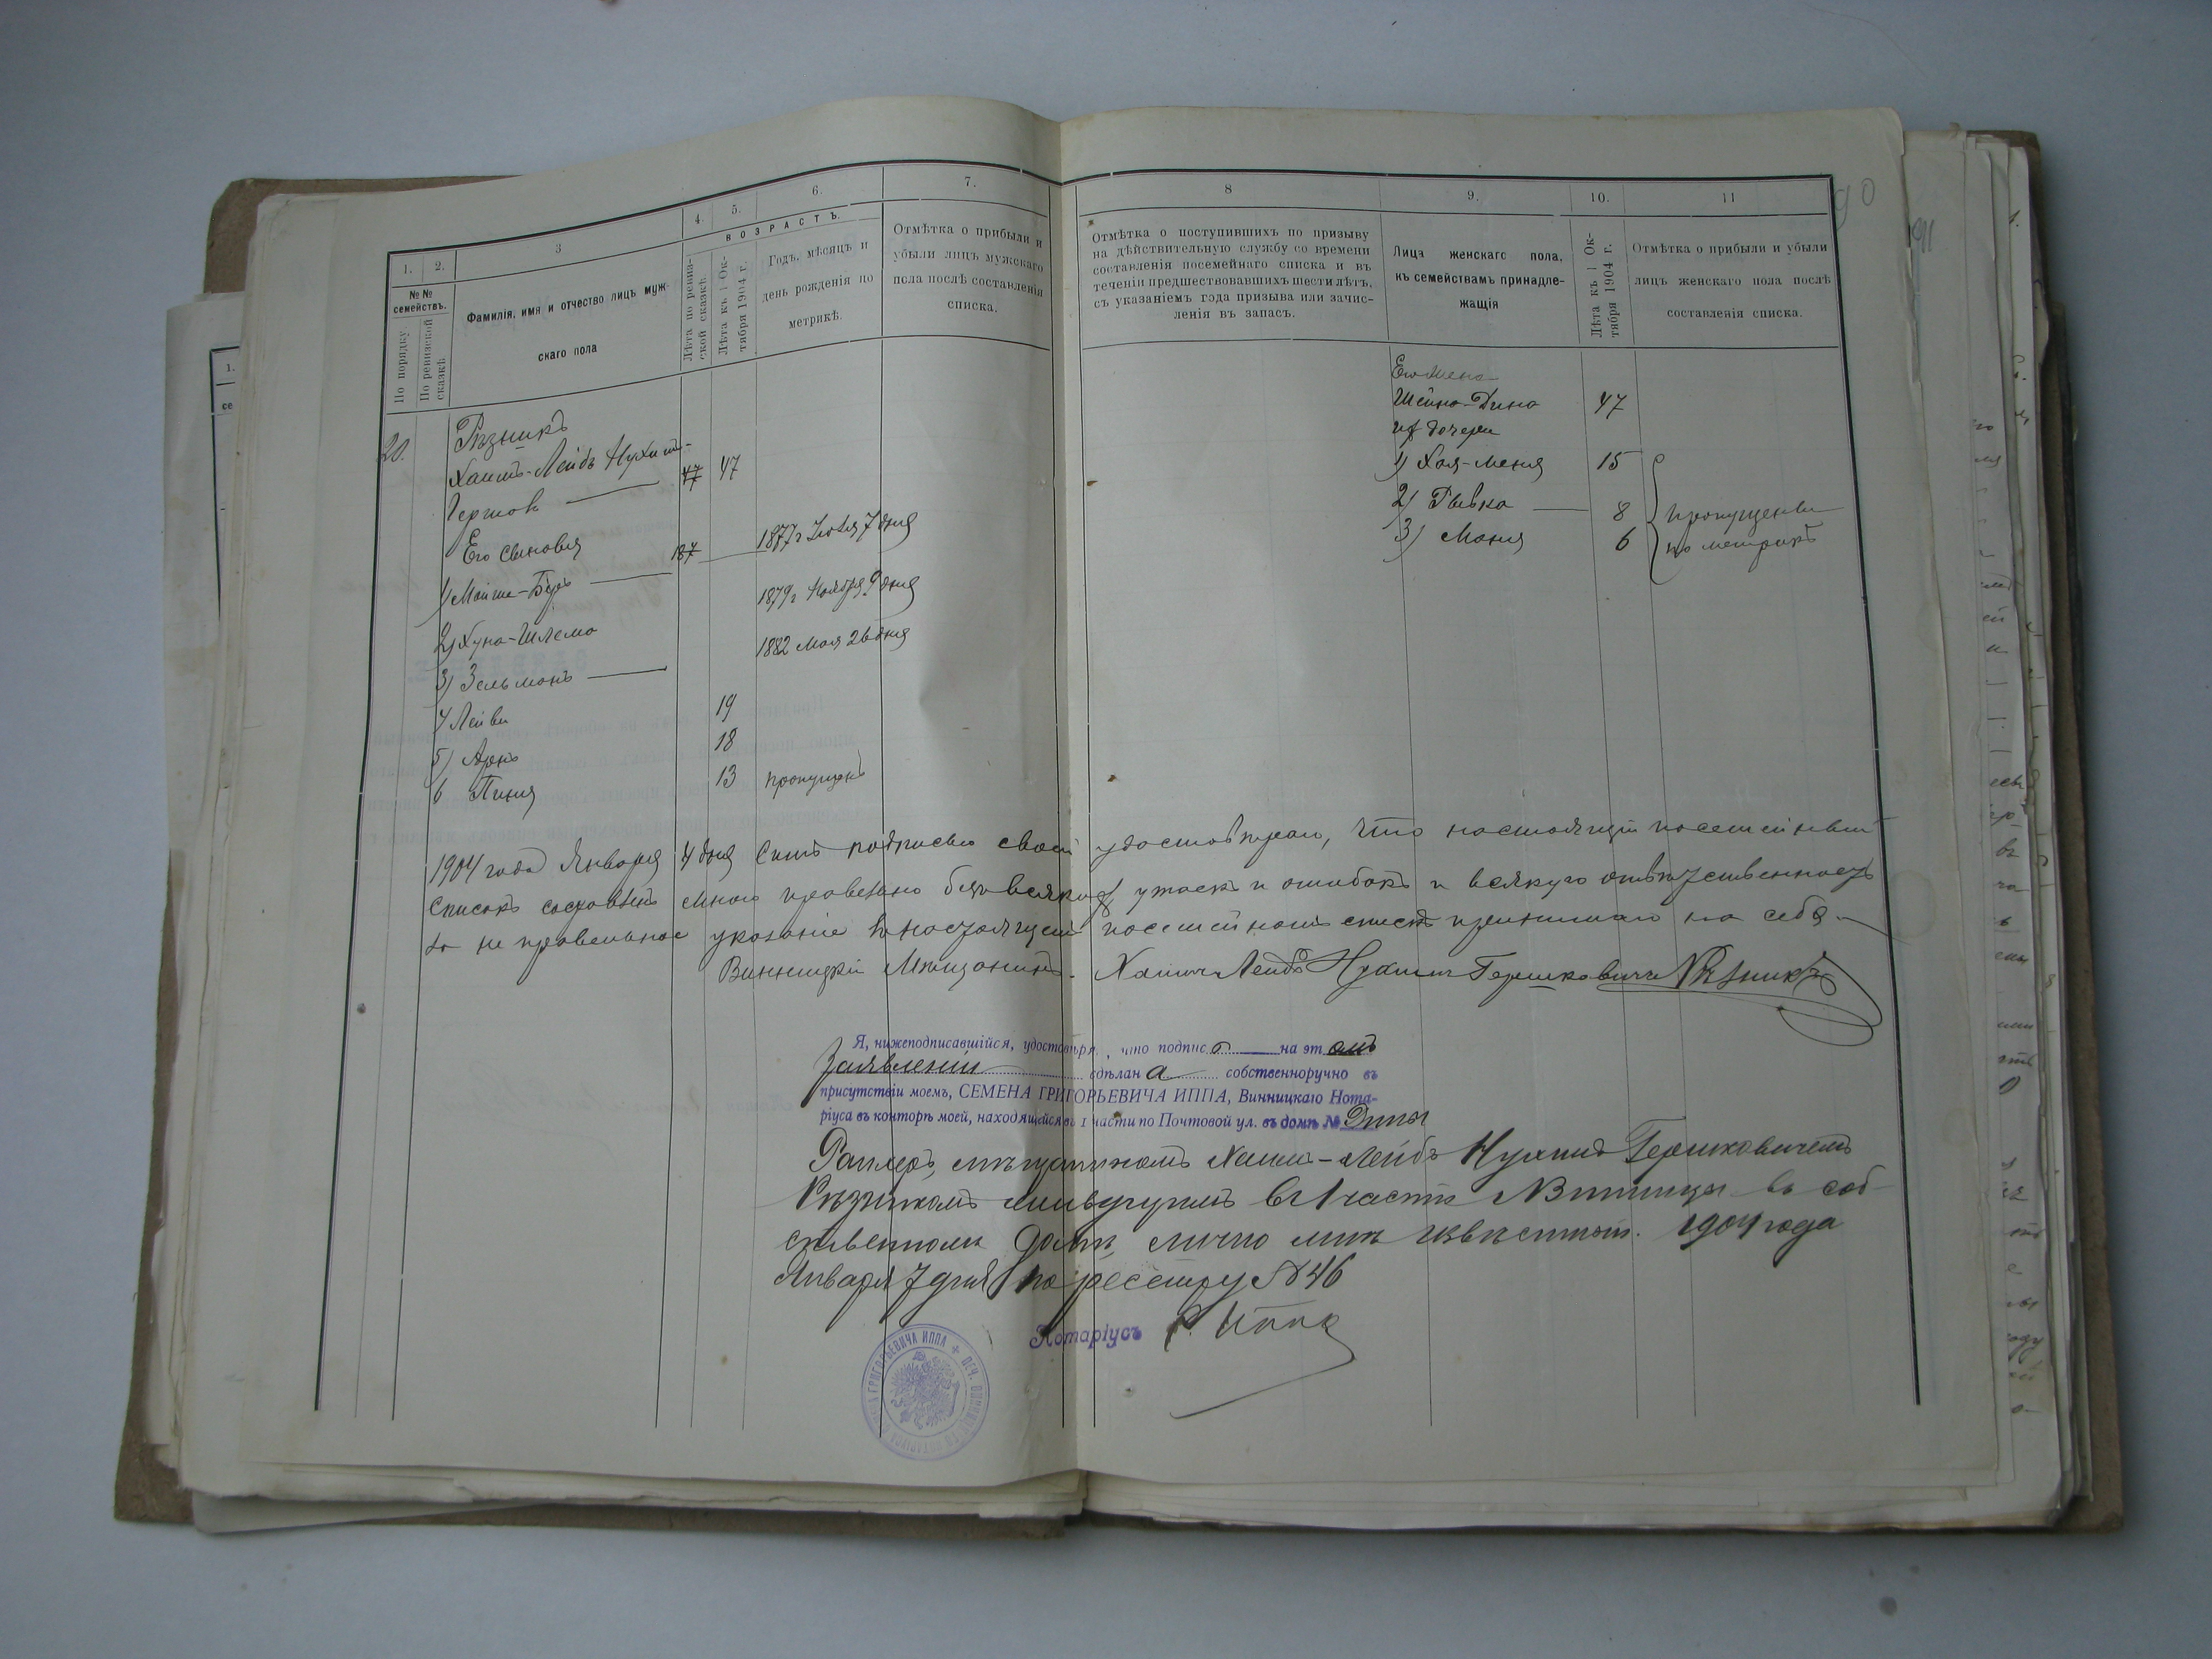 1.
2.
3
4.
5.
6.
7.
№№ семействъ.
По порядку
По ревизской сказкѣ
Фамилія, имя и отчество лицъ муж-
скаго пола
ВОЗРАСТЪ.
Лѣта по ревиз-
ской сказкѣ
Лѣта къ 1 Ок-
тября 1904 г.
Годъ, мѣсяцъ и
день рожденія по
метрикѣ.
Отмѣтка о прибыли и
убыли лицъ мужскаго
пола послѣ составленія
списка.
8
9.
10.
11
90
91
Отмѣтка о поступившихъ по призыву
на дѣйствительную службу со времени
составленія посемейнаго списка и въ
теченіи предшествовавшихъ шести лѣтъ,
съ указаніемъ года призыва или зачис-
ленія въ запасъ.
Лица женскаго пола,
къ семействамъ принадле-
жащія
Лѣта къ 1 Ок-
тября 1904 г.
Отмѣтка о прибыли и убыли
лицъ женскаго пола послѣ
составленія списка.
20.
Рѣзникъ
Хаимъ-Лейбъ Нухим-
Гершов 47 47
Его сыновья
1) Мойше-Беръ 187 1877 г Іюля 7 дня
2) Хуна-Шлема 1879 г Ноября 9 дня
3) Зельманъ 1882 Мая 26 дня
4 Лейви 19
5) Арнъ 18
6 Пиня 13 пропущенъ
Его жена
Шейна-Дина 47
их дочери
1) Хая-Меня 15
2) Рывка 8 пропущены
3) Маня 6 по метрикѣ
1904 года Января 4 дня Симъ подписью своей удостовѣряю, что настоящій посемейный
списокъ составленъ мною правельно безъ всякихъ утаекъ и ошибокъ и всякую отвѣтственность
за не правельное указаніе въ настоящемъ посемейномъ спискѣ принимаю на себя.
Винницкій Мѣщанинъ. Хаимъ Лейбъ Нухимъ Гершковичъ Рѣзникъ
Я, нижеподписавшійся, удостовѣряю, что подпись на этомъ
Заявленіи сдѣлана собственноручно въ
присутствіи моемъ, СЕМЕНА ГРИГОРЬЕВИЧА ИППА, Винницкаго Нота-
ріуса въ конторѣ моей, находящейся въ 1 части по Почтовой ул. въ домѣ №
мѣщаниномъ Хаимъ-Лейбъ Нухимъ Гершковичемъ
Рѣзникомъ живущимъ въ 1 части г. Винницы въ соб-
ственномъ домѣ, лично мнѣ извѣстнымъ. 1904 года
Января 7 дня по реестру № 46
Нотаріусъ С. Иппа
ГРИГОРЬЕВИЧА ИППА + ПЕЧ. ВИННИЦКАГО НОТАРІУСА